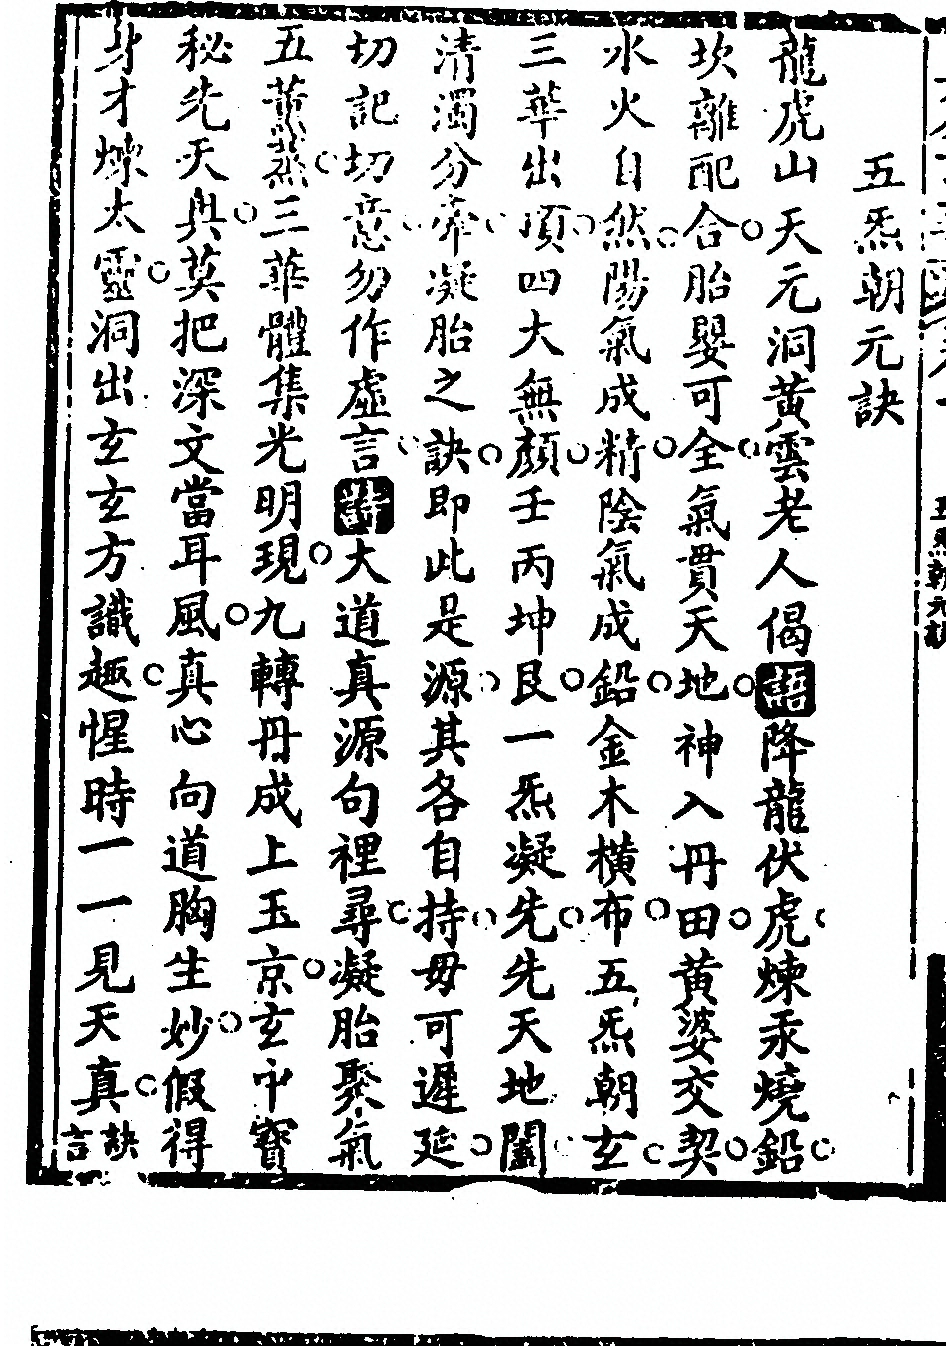 五炁朝元訣
龍虎山天元洞黃雲老人偈語降龍伏虎煉汞燒鉛
坎離配合胎嬰可全氣貫天地神入丹田黃婆交契
水火自然陽氣成精陰氣成鉛金木橫布五炁朝玄
三華出頂四大無顏壬丙坤艮一炁凝先先天地闔
清濁分牽凝胎之訣即此是源其各自持毋可遲延
切記切意勿作虛言詩大道真源句裡尋凝胎聚氣
五薰蒸三華體集光明現九轉丹成上玉京玄中寶
秘先天與莫把深文當耳風真心向道胸生妙假得
身才煉太靈洞出玄玄方識趣惺時一一見天真訣言
五炁朝元訣